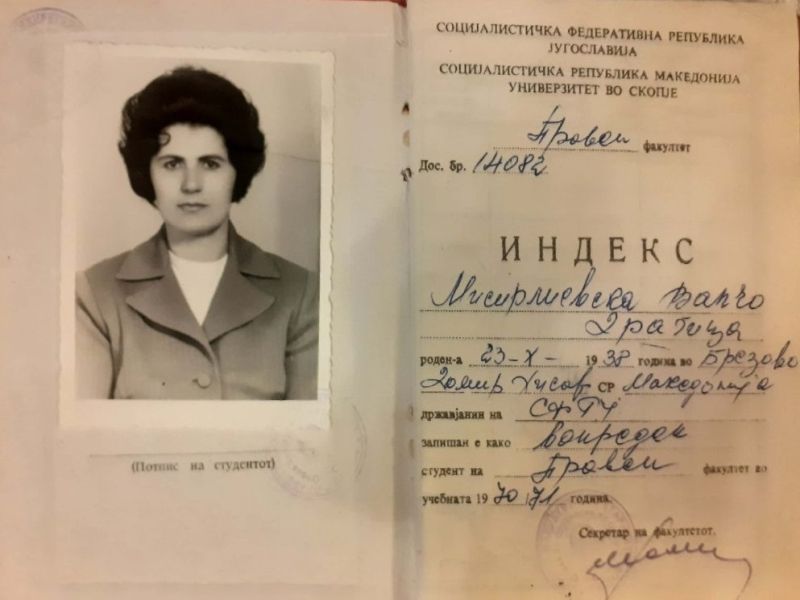 (Потпис на студентот)
СОЦИЈАЛИСТИЧКА ФЕДЕРАТИВНА РЕПУБЛИКА
ЈУГОСЛАВИЈА
СОЦИЈАЛИСТИЧКА РЕПУБЛИКА МАКЕДОНИЈА
УНИВЕРЗИТЕТ ВО СКОПЈЕ
Правен факултет
Дос. бр. 14082
ИНДЕКС
Мисирлиевска Ванчо
роден-а 23-X- 1938 година во Брезово
Хисар СР Македонија
државјанин на СФРЈ
запишан е како вонреден
студент на Правен факултет во
учебната 1970/71 година.
Секретар на факултетот,